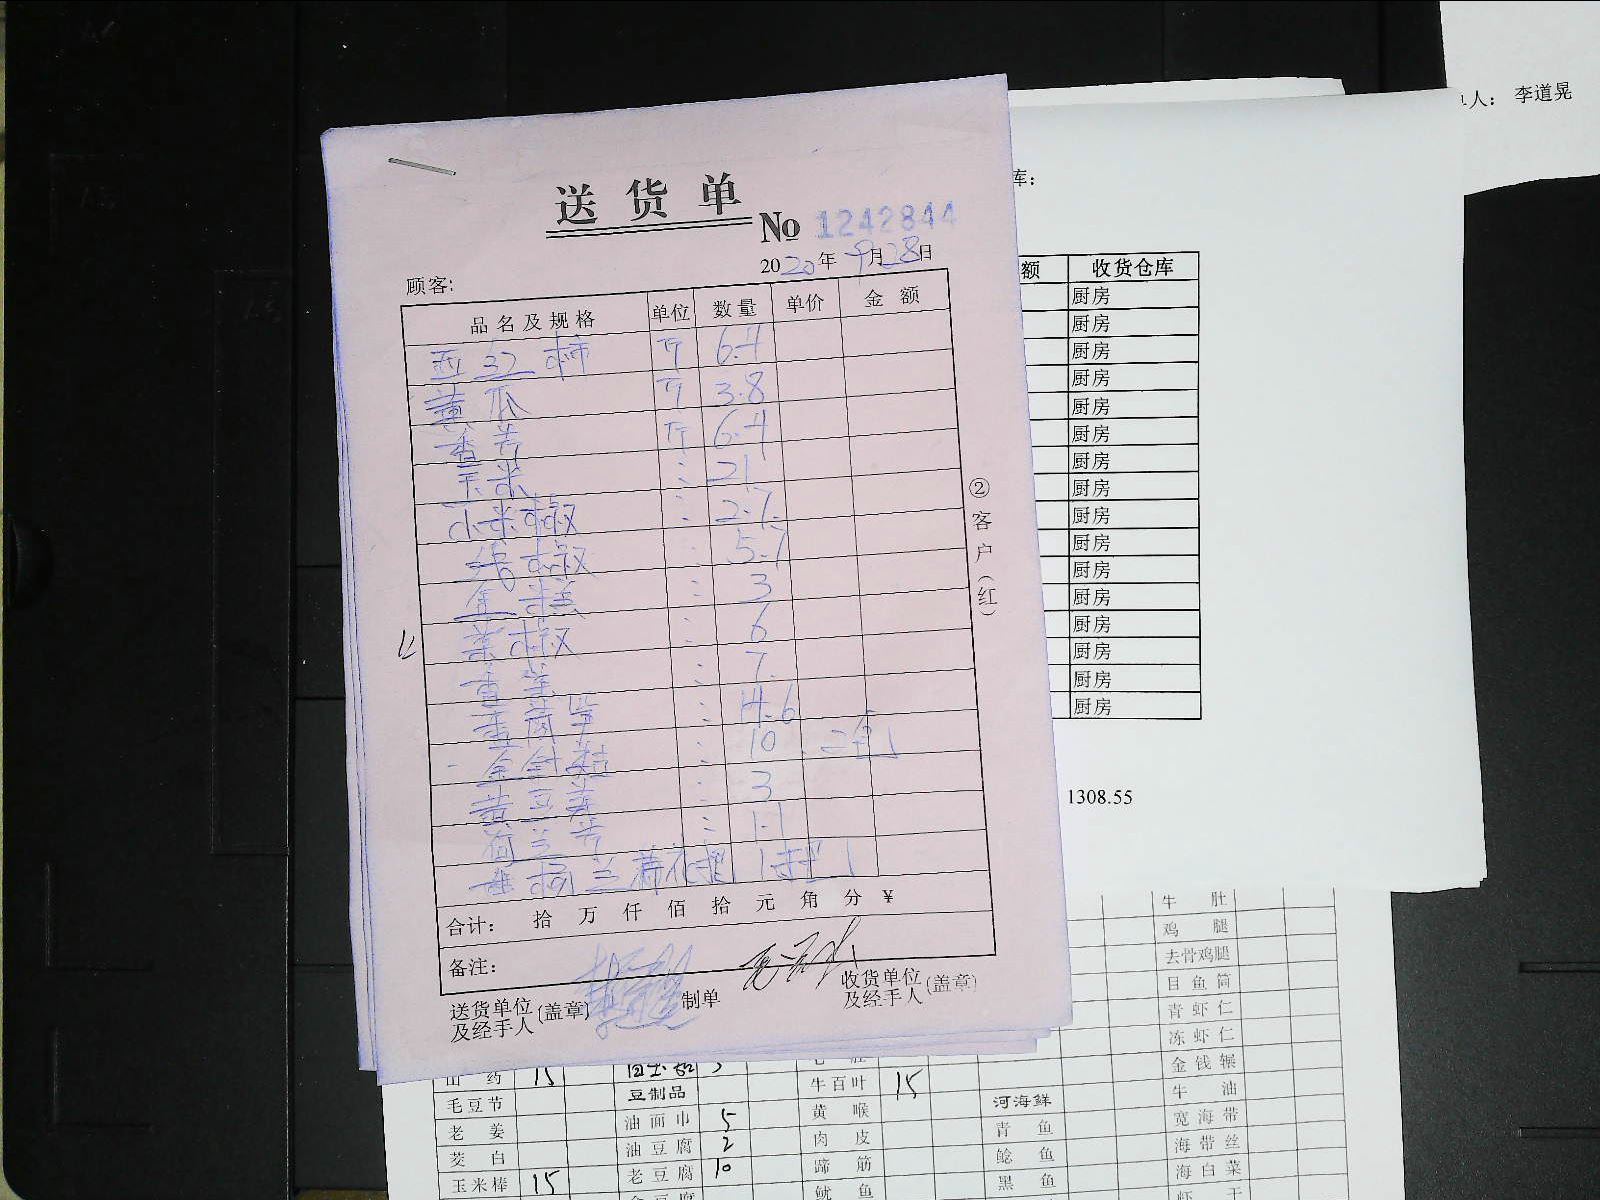 送货单
No 1242844
2020年9月28日
顾客:
品名及规格 单位 数量 单价 金额
西红柿 斤 6.4
黄瓜 斤 3.8
香芹 斤 6.4
玉米 : 21
小米椒 : 2.7
: 5.7
: 3
菜椒 : 6
: 7
: 14.6
金针菇 : 10
黄豆芽 : 3
荷兰芹 : 1.1
合计: 拾 万 仟 佰 拾 元 角 分 ¥
备注:
送货单位及经手人(盖章) 制单 收货单位及经手人(盖章)
②客户(红)
单人: 李道晃
库:
额 收货仓库
厨房
厨房
厨房
厨房
厨房
厨房
厨房
厨房
厨房
厨房
厨房
厨房
厨房
厨房
厨房
厨房
1308.55
牛肚
鸡腿
去骨鸡腿
目鱼筒
青虾仁
冻虾仁
山药 15 牛百叶 15 金钱
毛豆节 豆制品 黄喉 河海鲜 牛油
老姜 油面巾 5 肉皮 青鱼 宽海带
茭白 油豆腐 2 蹄筋 鲶鱼 海带丝
玉米棒 15 老豆腐 10 鱿鱼 黑鱼 海白菜
虾干